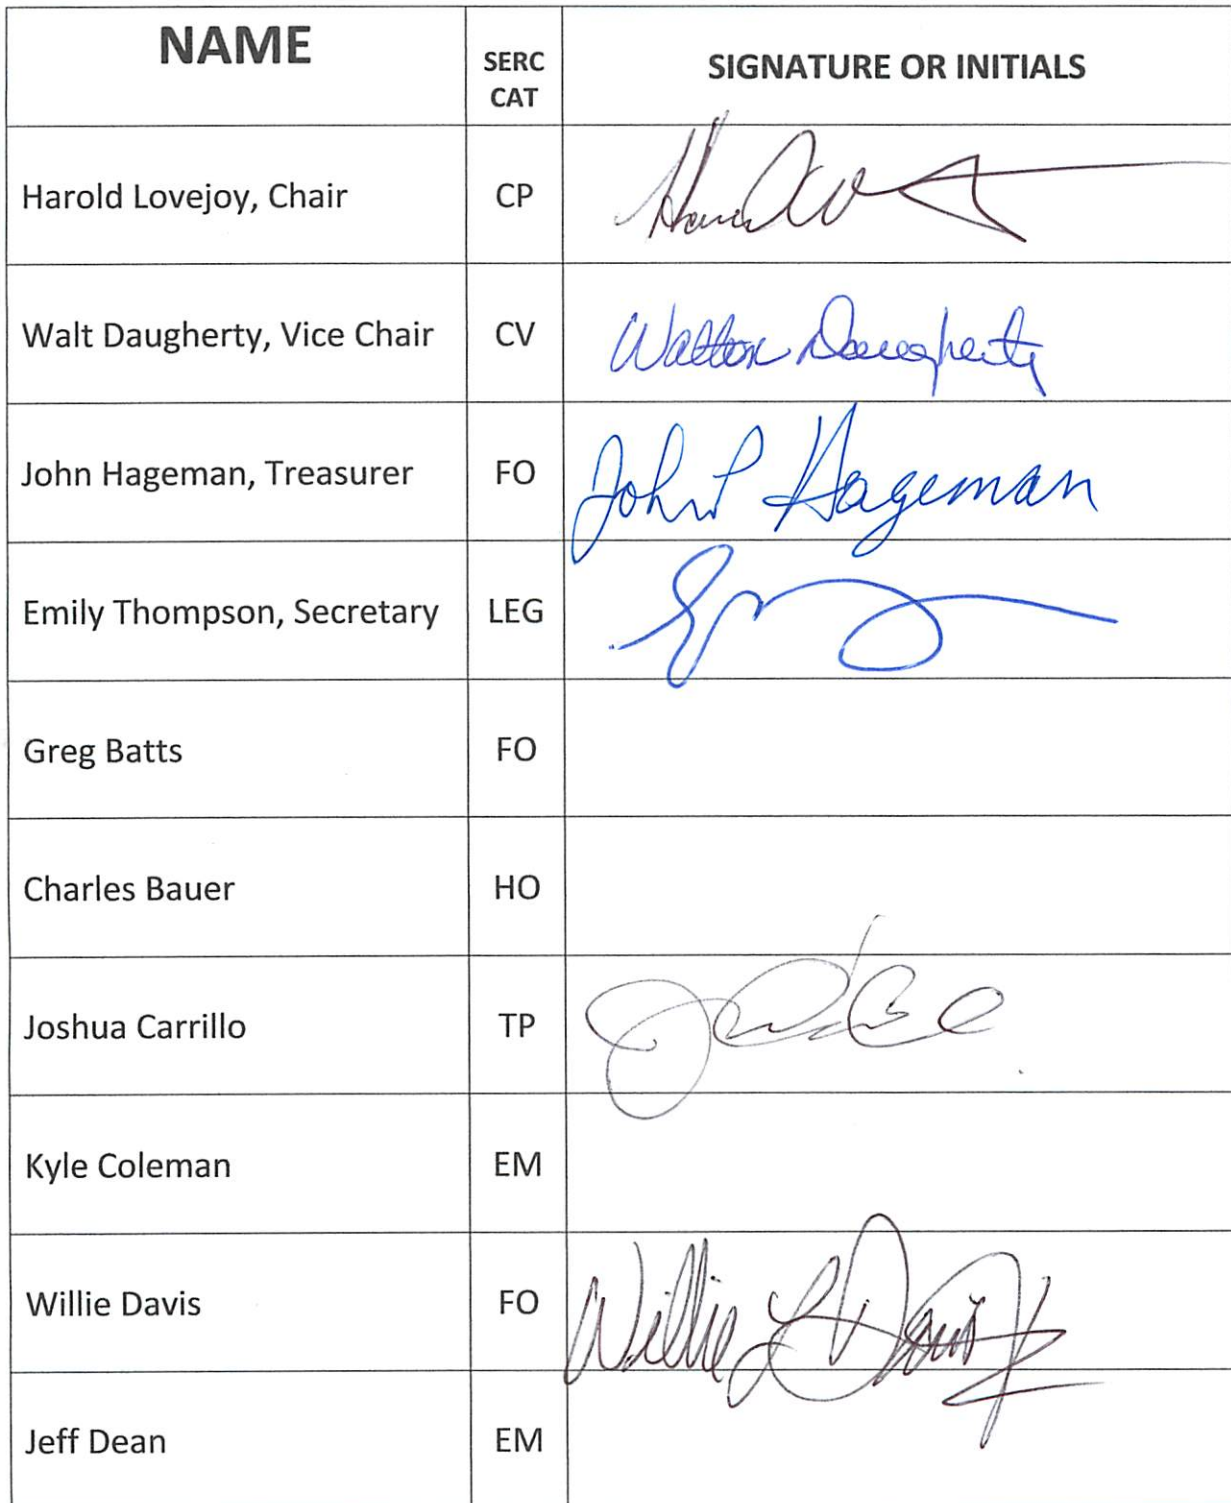 NAME SERC CAT SIGNATURE OR INITIALS
Harold Lovejoy, Chair CP
Walt Daugherty, Vice Chair CV Walton Daugherty
John Hageman, Treasurer FO John P Hageman
Emily Thompson, Secretary LEG
Greg Batts FO
Charles Bauer HO
Joshua Carrillo TP
Kyle Coleman EM
Willie Davis FO Willie L Davis
Jeff Dean EM